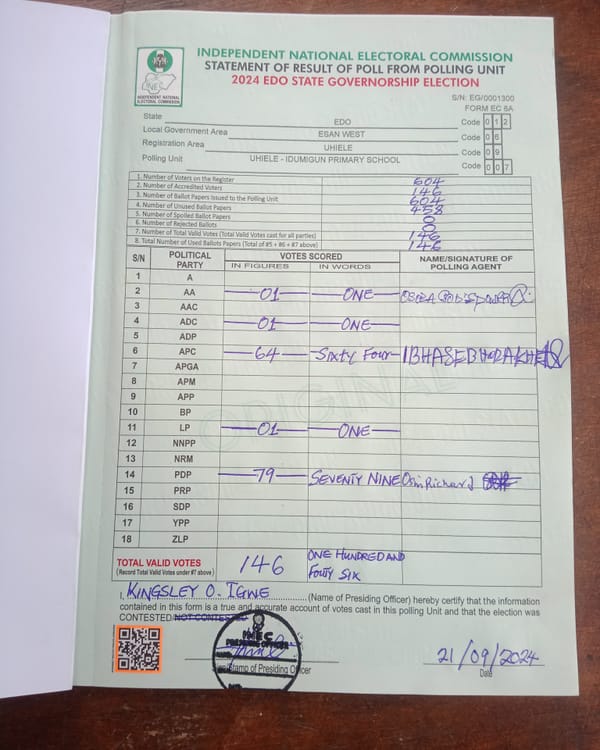 INDEPENDENT NATIONAL ELECTORAL COMMISSION
STATEMENT OF RESULT OF POLL FROM POLLING UNIT
2024 EDO STATE GOVERNORSHIP ELECTION
INEC
INDEPENDENT NATIONAL ELECTORAL COMMISSION
S/N: EG/0001300
FORM EC 8A
State EDO Code 0 1 2
Local Government Area ESAN WEST Code 0 6
Registration Area UHIELE Code 0 9
Polling Unit UHIELE - IDUMIGUN PRIMARY SCHOOL Code 0 0 7
1. Number of Voters on the Register 604
2. Number of Accredited Voters 146
3. Number of Ballot Papers Issued to the Polling Unit 604
4. Number of Unused Ballot Papers 458
5. Number of Spoiled Ballot Papers 0
6. Number of Rejected Ballots 0
7. Number of Total Valid Votes (Total Valid Votes cast for all parties) 146
8. Total Number of Used Ballots Papers (Total of #5 + #6 + #7 above) 146
S/N POLITICAL PARTY VOTES SCORED NAME/SIGNATURE OF POLLING AGENT
IN FIGURES IN WORDS
1 A
2 AA 01 ONE
3 AAC
4 ADC 01 ONE
5 ADP
6 APC 64 Sixty Four
7 APGA
8 APM
9 APP
10 BP
11 LP 01 ONE
12 NNPP
13 NRM
14 PDP 79 SEVENTY NINE Richard
15 PRP
16 SDP
17 YPP
18 ZLP
ORIGINAL
TOTAL VALID VOTES 146 ONE HUNDRED AND
(Record Total Valid Votes under #7 above) FOUTY SIX
I, KINGSLEY O. IGWE (Name of Presiding Officer) hereby certify that the information
contained in this form is a true and accurate account of votes cast in this polling Unit and that the election was
CONTESTED/NOT CONTESTED
INEC
PRESIDING OFFICER
Stamp of Presiding Officer
21/09/2024
Date